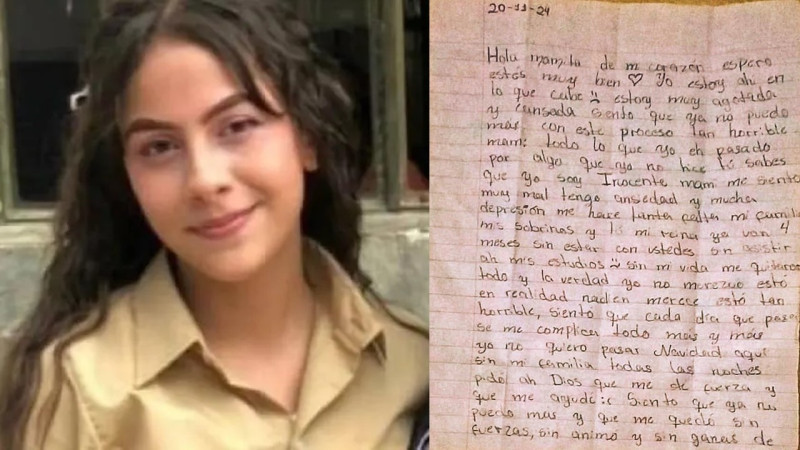 20-11-24
Hola mamita de mi corazon espero
estés muy bien ♡ Yo estoy ahi en
lo que cabe :( estoy muy agotada
y cansada siento que ya no puedo
más con este proceso tan horrible
mami todo lo que yo eh pasado
por algo que yo no hice tú sabes
que yo soy Inocente mami me siento
muy mal tengo ansiedad y mucha
depresión me hace tanta falta mi familia
mis sobrinas y tú mi reina ya van 4
meses sin estar con ustedes sin asistir
ah mis estudios :( sin mi vida me quitaron
todo y la verdad yo no merezco esto
en realidad nadien merece esto tan
horrible, siento que cada día que pasa
se me complica todo más y más
ya no quiero pasar Navidad aquí
sin mi familia todas las noches
pido ah Dios que me de fuerza y
que me ayude :( Siento que ya no
puedo más y que me quedó sin
fuerzas, sin animó y sin ganas de